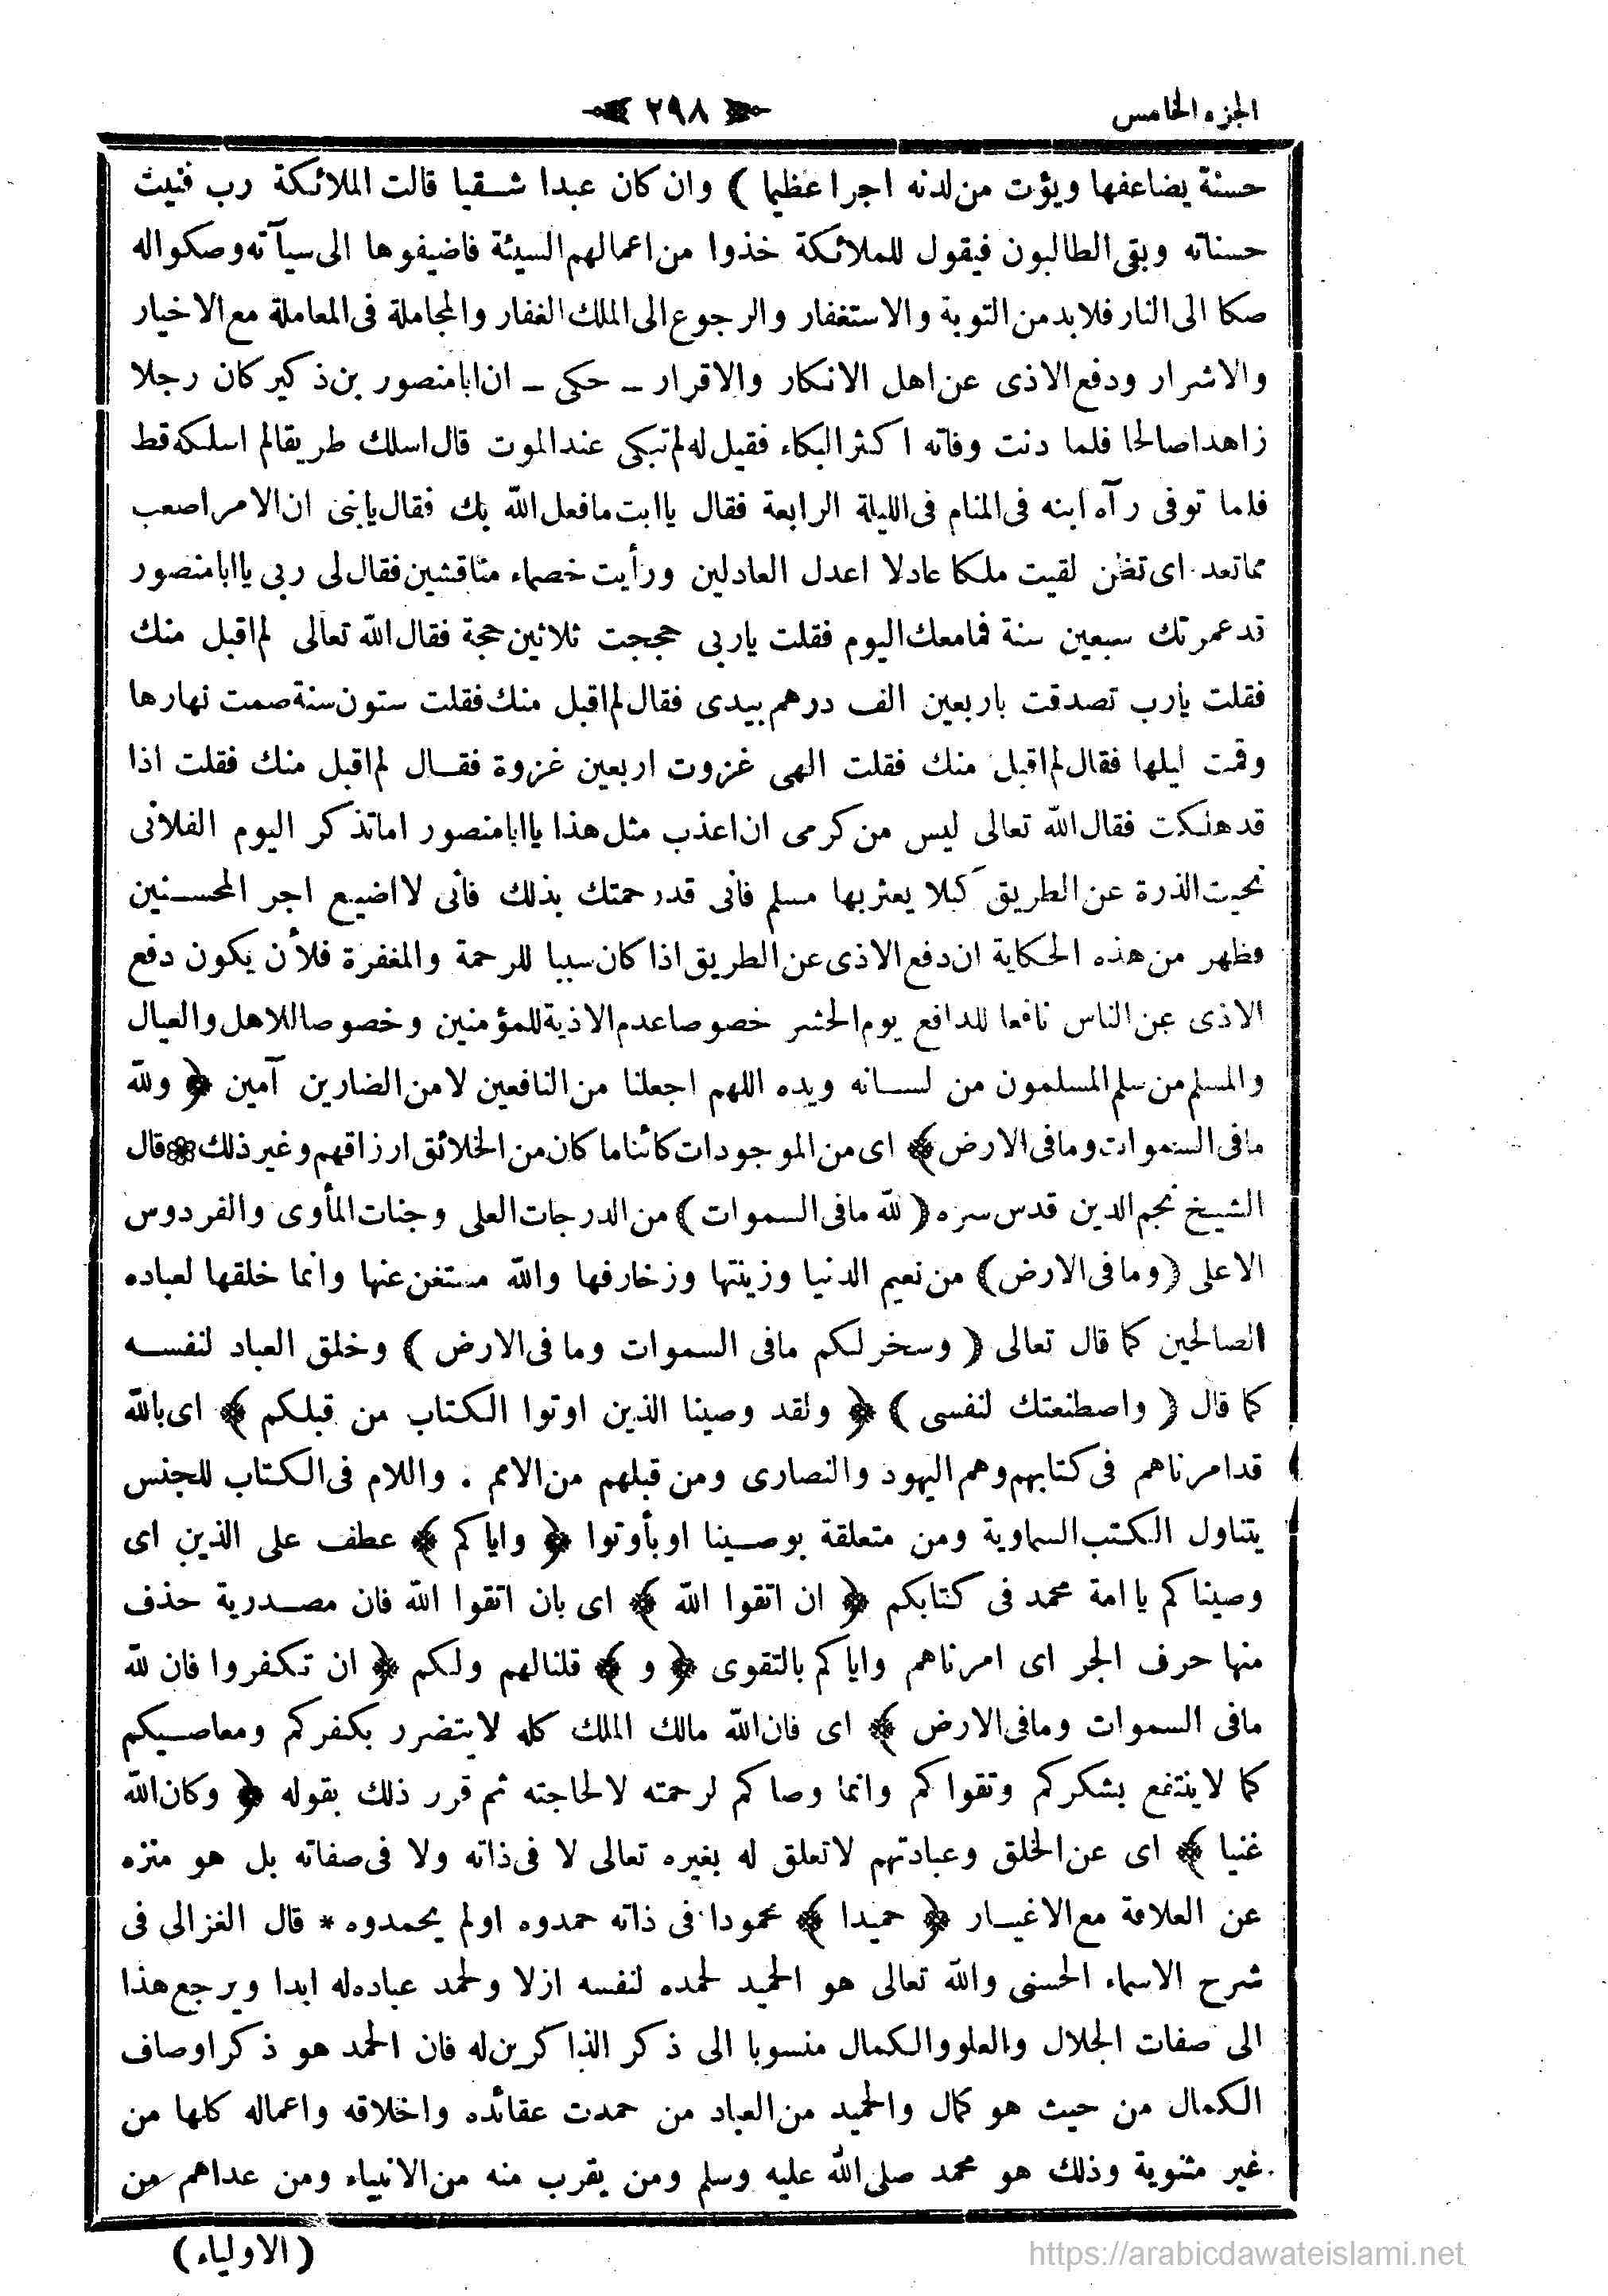 الجزء الخامس
٢٩٨
حسنة يضاعفها ويؤت من لدنه اجرا عظيما ) وان كان عبدا شقيا قالت الملائكة رب فنيت
حسناته وبقى الطالبون فيقول للملائكة خذوا من اعمالهم السيئة فاضيفوها الى سيآته وصكوا له
صكا الى النار فلا بد من التوبة والاستغفار والرجوع الى الملك الغفار والمجاملة فى المعاملة مع الاخيار
والاشرار ودفع الاذى عن اهل الانكار والاقرار ــ حكى ــ ان ابا منصور بن ذكير كان رجلا
زاهدا صالحا فلما دنت وفاته اكثر البكاء فقيل له لم تبكى عند الموت قال اسلك طريقا لم اسلكه قط
فلما توفى رآه ابنه فى المنام فى الليلة الرابعة فقال يا ابت ما فعل الله بك فقال يا بنى ان الامر اصعب
مما تعد اى تظن لقيت ملكا عادلا اعدل العادلين ورأيت خصماء مناقشين فقال لى ربى يا ابا منصور
قد عمرتك سبعين سنة فما معك اليوم فقلت يا ربى حججت ثلاثين حجة فقال الله تعالى لم اقبل منك
فقلت يا رب تصدقت باربعين الف درهم بيدى فقال لم اقبل منك فقلت ستون سنة صمت نهارها
وقمت ليلها فقال لم اقبل منك فقلت الهى غزوت اربعين غزوة فقال لم اقبل منك فقلت اذا
قد هلكت فقال الله تعالى ليس من كرمى ان اعذب مثل هذا يا ابا منصور اما تذكر اليوم الفلانى
نحيت الذرة عن الطريق كيلا يعثر بها مسلم فانى قد رحمتك بذلك فانى لا اضيع اجر المحسنين
فظهر من هذه الحكاية ان دفع الاذى عن الطريق اذا كان سببا للرحمة والمغفرة فلأن يكون دفع
الاذى عن الناس نافعا للدافع يوم الحشر خصوصا عدم الاذية للمؤمنين وخصوصا للاهل والعيال
والمسلم من سلم المسلمون من لسانه ويده اللهم اجعلنا من النافعين لا من الضارين آمين ﴿ ولله
ما فى السموات وما فى الارض ﴾ اى من الموجودات كائنا ما كان من الخلائق ارزاقهم وغير ذلك ❁ قال
الشيخ نجم الدين قدس سره ( لله ما فى السموات ) من الدرجات العلى وجنات المأوى والفردوس
الاعلى ( وما فى الارض ) من نعيم الدنيا وزينتها وزخارفها والله مستغن عنها وانما خلقها لعباده
الصالحين كما قال تعالى ( وسخر لكم ما فى السموات وما فى الارض ) وخلق العباد لنفسه
كما قال ( واصطنعتك لنفسى ) ﴿ ولقد وصينا الذين اوتوا الكتاب من قبلكم ﴾ اى بالله
قد امرناهم فى كتابهم وهم اليهود والنصارى ومن قبلهم من الامم . واللام فى الكتاب للجنس
يتناول الكتب السماوية ومن متعلقة بوصينا او بأوتوا ﴿ واياكم ﴾ عطف على الذين اى
وصيناكم يا امة محمد فى كتابكم ﴿ ان اتقوا الله ﴾ اى بان اتقوا الله فان مصدرية حذف
منها حرف الجر اى امرناهم واياكم بالتقوى ﴿ و ﴾ قلنا لهم ولكم ﴿ ان تكفروا فان لله
ما فى السموات وما فى الارض ﴾ اى فان الله مالك الملك كله لا يتضرر بكفركم ومعاصيكم
كما لا ينتفع بشكركم وتقواكم وانما وصاكم لرحمته لا لحاجته ثم قرر ذلك بقوله ﴿ وكان الله
غنيا ﴾ اى عن الخلق وعبادتهم لا تعلق له بغيره تعالى لا فى ذاته ولا فى صفاته بل هو منزه
عن العلاقة مع الاغيار ﴿ حميدا ﴾ محمودا فى ذاته حمدوه او لم يحمدوه * قال الغزالى فى
شرح الاسماء الحسنى والله تعالى هو الحميد لحمده لنفسه ازلا ولحمد عباده له ابدا ويرجع هذا
الى صفات الجلال والعلو والكمال منسوبا الى ذكر الذاكرين له فان الحمد هو ذكر اوصاف
الكمال من حيث هو كمال والحميد من العباد من حمدت عقائده واخلاقه واعماله كلها من
غير مثنوية وذلك هو محمد صلى الله عليه وسلم ومن يقرب منه من الانبياء ومن عداهم من
( الاولياء )
https://arabicdawateislami.net